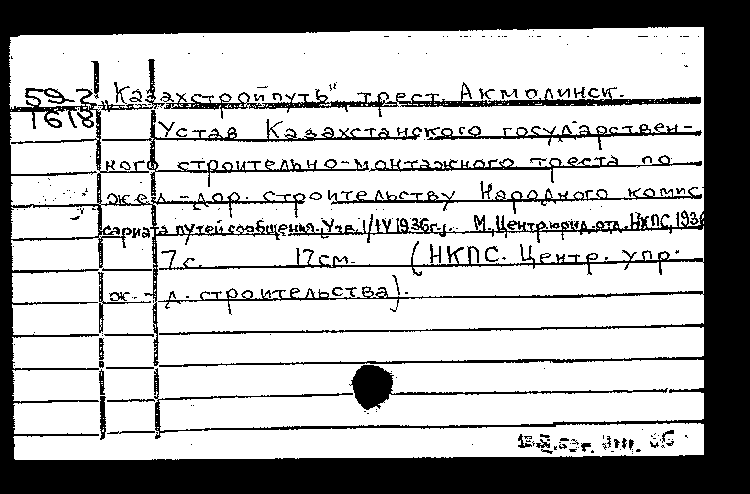 59-2 „Казахстройпуть", трест. Акмолинск.
1618 Устав Казахстанского государствен-
ного строительно-монтажного треста по
жел.-дор. строительству Народного комис
сариата путей сообщения. Утв. 1/IV 1936г.). М., Центр. юрид. отд. НКПС, 1936
7 с. 17 см. (НКПС. Центр. упр.
ж.-д. строительства).